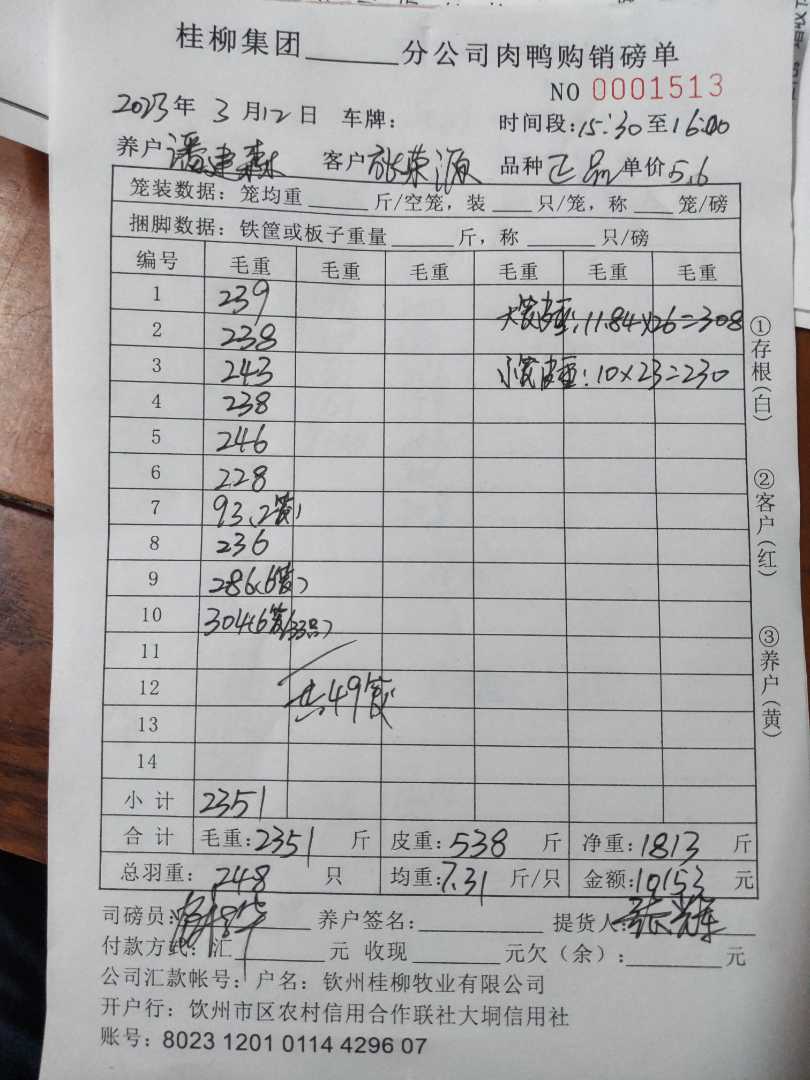 桂柳集团______分公司肉鸭购销磅单
NO 0001513
2023年3月12日 车牌: 时间段:15:30至16:00
养户潘建森 客户张荣源 品种正品单价5.6
笼装数据:笼均重____斤/空笼,装___只/笼,称___笼/磅
捆脚数据:铁筐或板子重量____斤,称____只/磅
编号 毛重 毛重 毛重 毛重 毛重 毛重
1 239
大笼皮重:11.84×26=308
2 238
3 243
小笼皮重:10×23=230
4 238
5 246
6 228
7 93(2笼)
8 236
9 286(6笼)
10 304(6笼33只)
11
12
共49笼
13
14
小计 2351
合计 毛重:2351 斤 皮重:538 斤 净重:1813 斤
总羽重:248 只 均重:7.31 斤/只 金额:10153 元
司磅员: 养户签名:________ 提货人:
付款方式:汇______元 收现______元欠(余):______元
公司汇款帐号:户名:钦州桂柳牧业有限公司
开户行:饮州市区农村信用合作联社大垌信用社
账号:8023 1201 0114 4296 07
①存根(白)
②客户(红)
③养户(黄)